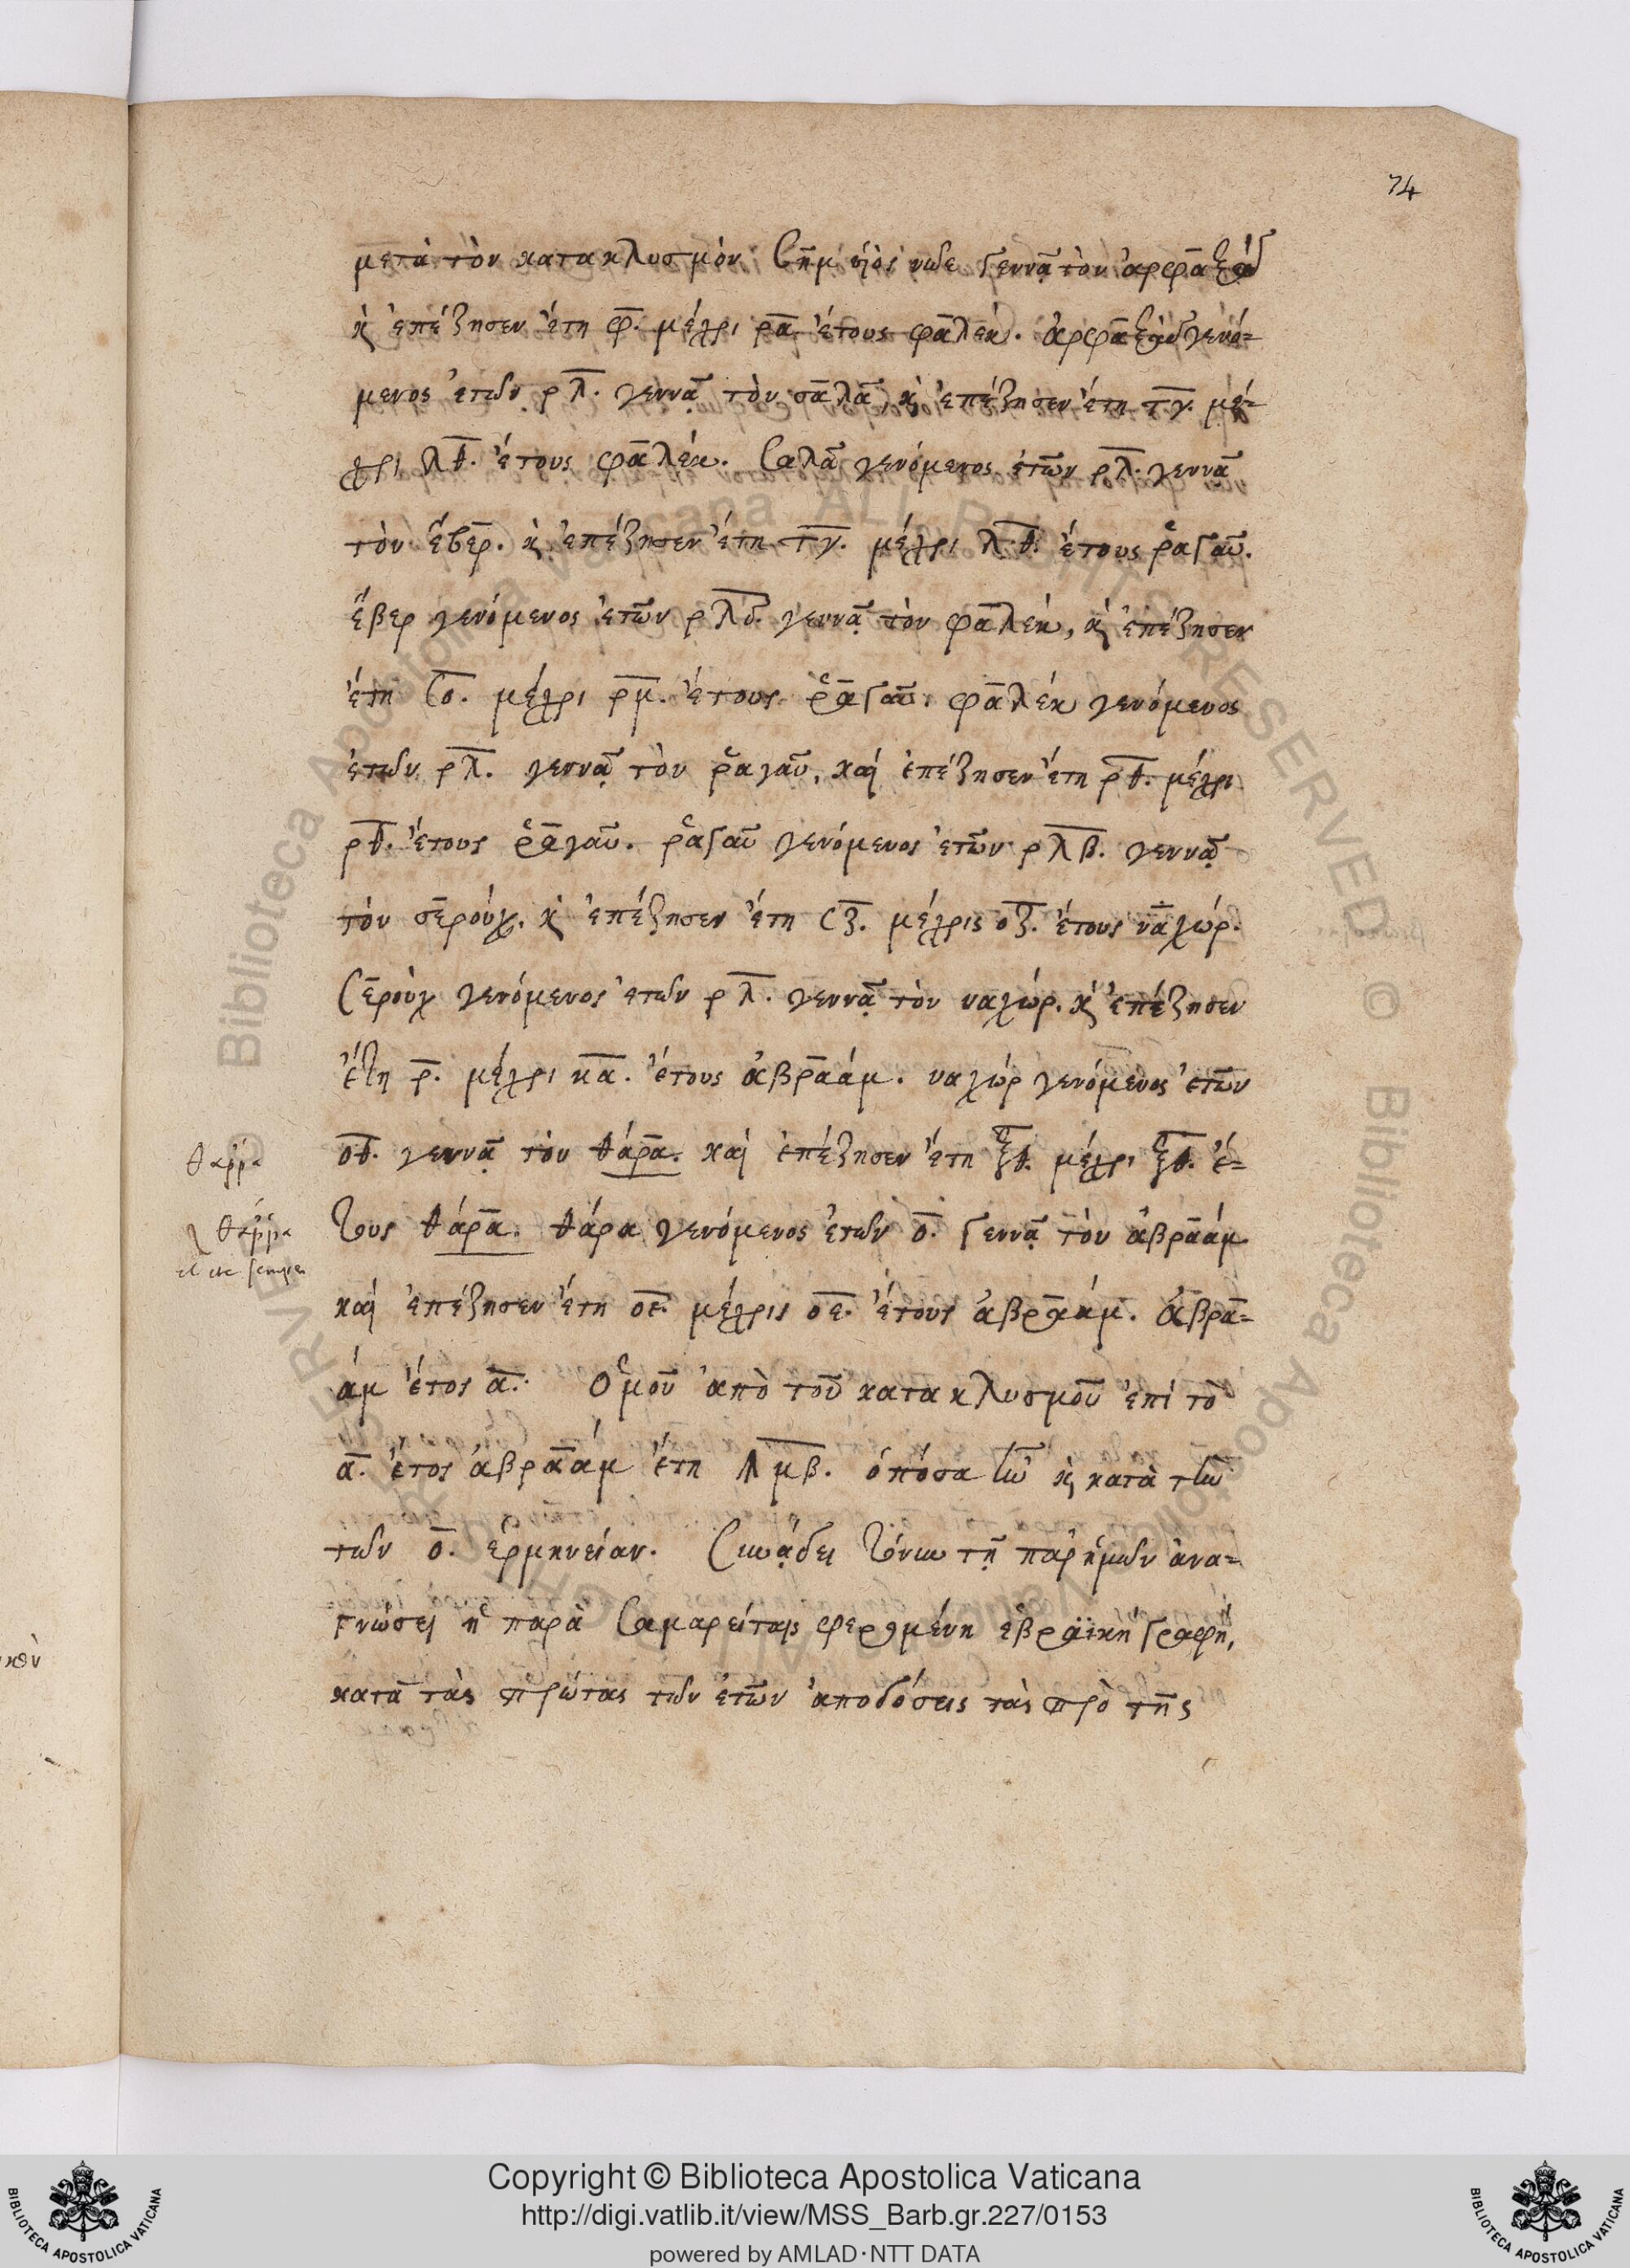 74
μετὰ τὸν κατακλυσμόν. Σὴμ υἱὸς νῶε γεννᾷ τὸν ἀρφαξάδ
κ̀ ἐπέζησεν ἔτη φ̅. μέχρι ρ̅α̅ ἔτους φαλέκ. ἀρφαξὰδ γενό=
μενος ἐτῶν ρ̅λ̅. γεννᾷ τὸν σαλᾶ, κ̀ ἐπέζησεν ἔτη τ̅γ̅. μέ=
χρι λ̅θ̅. ἔτους φαλέκ. Σαλᾶ γενόμενος ἐτῶν ρ̅λ̅. γεννᾷ
τὸν ἕβερ. κ̀ ἐπέζησεν ἔτη τ̅γ̅. μέχρι λ̅θ̅. ἔτους ῥαγαῦ.
ἕβερ γενόμενος ἐτῶν ρ̅λ̅δ̅. γεννᾷ τὸν φαλέκ, κ̀ ἐπέζησεν
ἔτη σ̅ο̅. μέχρι ρ̅μ̅. ἔτους ῥαγαῦ. φαλέκ γενόμενος
ἐτῶν ρ̅λ̅. γεννᾷ τὸν ῥαγαῦ, καὶ ἐπέζησεν ἔτη ρ̅θ̅. μέχρι
ρ̅θ̅. ἔτους ῥαγαῦ. ῥαγαῦ γενόμενος ἐτῶν ρ̅λ̅β̅. γεννᾷ
τὸν σερούχ. κ̀ ἐπέζησεν ἔτη σ̅ζ̅. μέχρις ο̅ζ̅. ἔτους ναχώρ.
Σεροὺχ γενόμενος ἐτῶν ρ̅λ̅. γεννᾷ τὸν ναχώρ. κ̀ ἐπέζησεν
ἔτη ρ̅. μέχρι κ̅α̅. ἔτους ἀβραάμ. ναχώρ γενόμενος ἐτῶν
θαρρα
ο̅θ̅. γεννᾷ τὸν θάρα. καὶ ἐπέζησεν ἔτη ξ̅θ̅. μέχρι ξ̅θ̅. ἔ=
θάρρα
et sic semper
τους θάρα. θάρα γενόμενος ἐτῶν ο̅. γεννᾷ τὸν ἀβραάμ
καὶ ἐπέζησεν ἔτη ο̅ε̅. μέχρις ο̅ε̅. ἔτους ἀβραάμ. ἀβρα=
άμ ἔτος α̅. Ὁμοῦ ἀπὸ τοῦ κατακλυσμοῦ ἐπὶ τὸ
α̅. ἔτος ἀβραάμ ἔτη ϡ̅μ̅β̅. ὁπόσα ἦν κ̀ κατὰ τὴν
τῶν ο̅. ἑρμηνείαν. Συνᾴδει τοίνυν τῇ παρ' ἡμῶν ἀνα=
γνώσει ἡ παρὰ Σαμαρείταις φερομένη ἑβραϊκὴ γραφή,
κατὰ τὰς πρώτας τῶν ἐτῶν ἀποδόσεις τὰς πρὸ τῆς
Copyright © Biblioteca Apostolica Vaticana
http://digi.vatlib.it/view/MSS_Barb.gr.227/0153
powered by AMLAD·NTT DATA
BIBLIOTECA APOSTOLICA VATICANA
BIBLIOTECA APOSTOLICA VATICANA